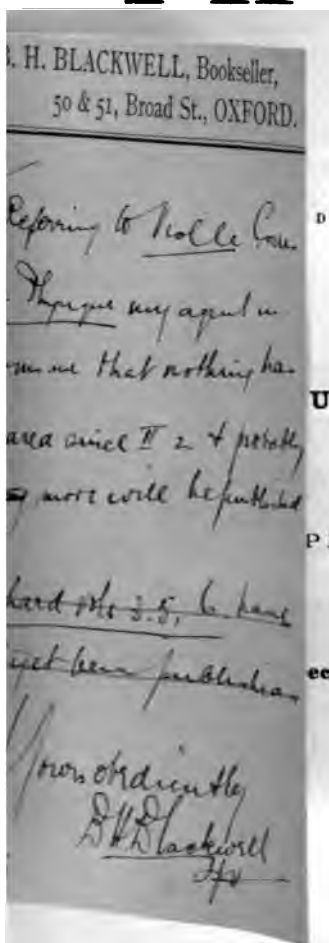 . H. BLACKWELL, Bookseller,
50 & 51, Broad St., OXFORD.
Referring to Kolle Cou
my agent in
me that nothing has
ared since II 2 & possibly
more will be published
3.5, 6 have
yet been published
Yours obediently
B H Blackwell
D
U
P
ec